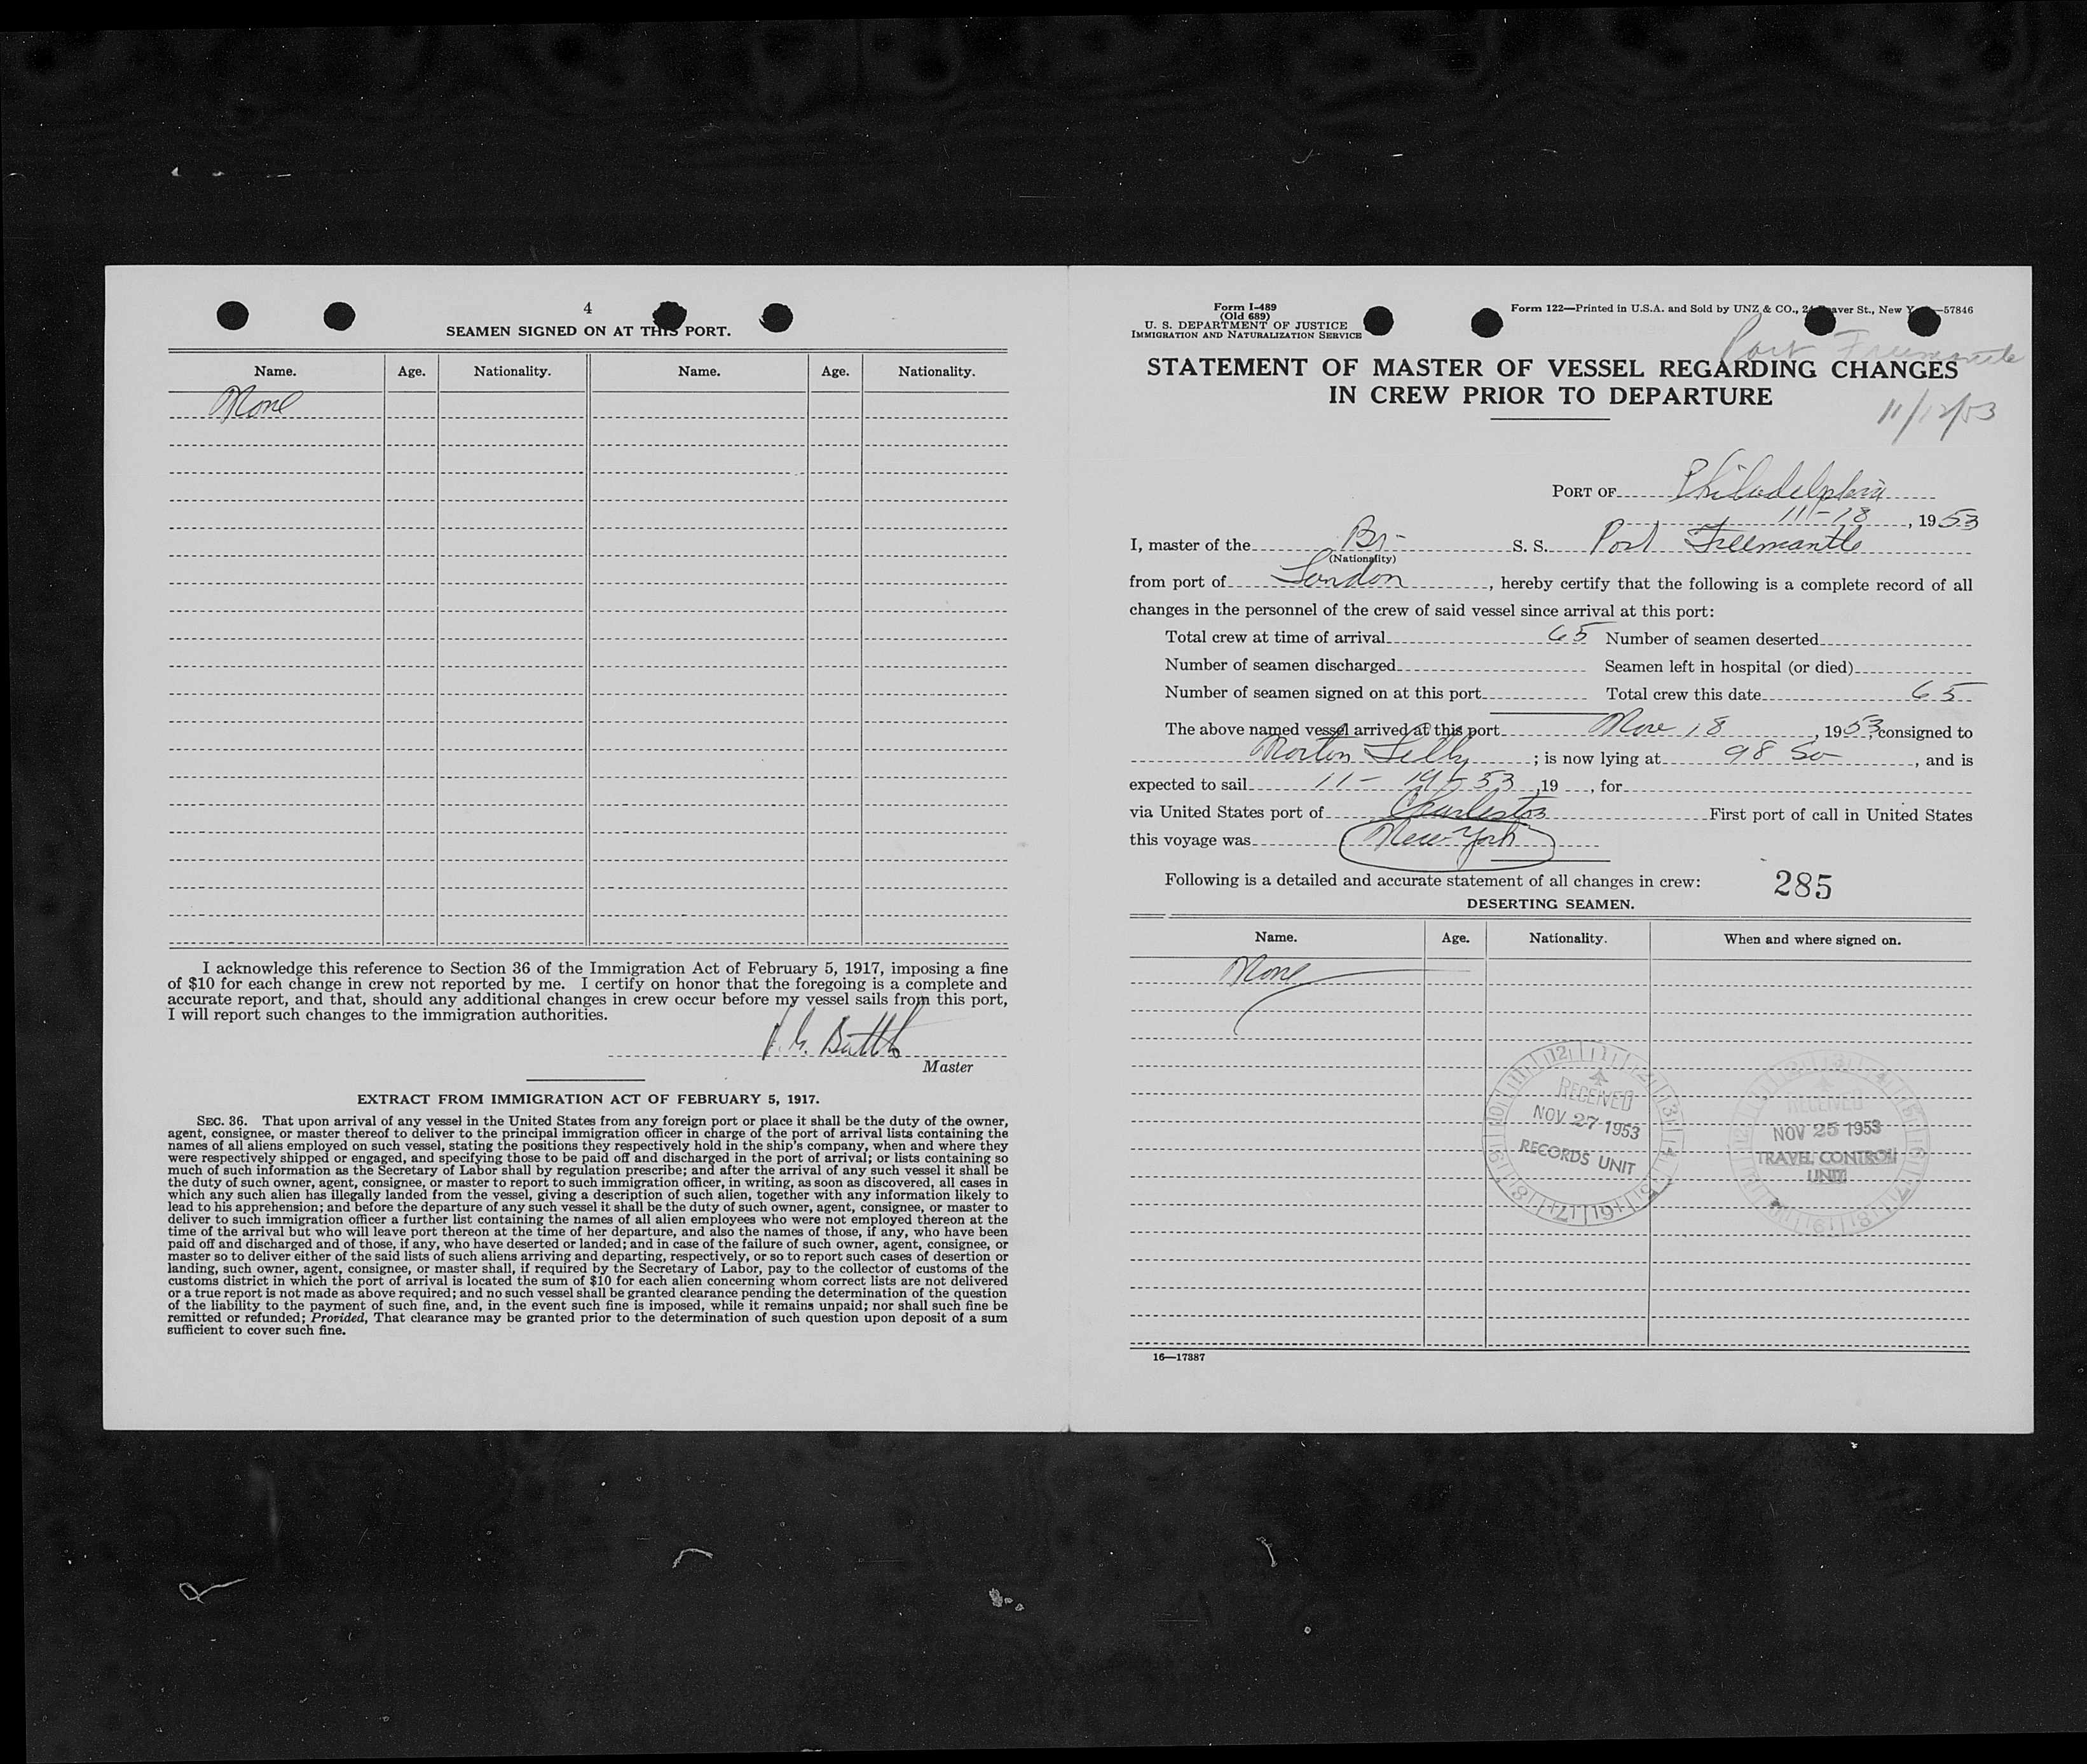 4
SEAMEN SIGNED ON AT THIS PORT.
Name. Age. Nationality. Name. Age. Nationality.
None
I acknowledge this reference to Section 36 of the Immigration Act of February 5, 1917, imposing a fine
of $10 for each change in crew not reported by me. I certify on honor that the foregoing is a complete and
accurate report, and that, should any additional changes in crew occur before my vessel sails from this port,
I will report such changes to the immigration authorities.
Master
EXTRACT FROM IMMIGRATION ACT OF FEBRUARY 5, 1917.
SEC. 36. That upon arrival of any vessel in the United States from any foreign port or place it shall be the duty of the owner,
agent, consignee, or master thereof to deliver to the principal immigration officer in charge of the port of arrival lists containing the
names of all aliens employed on such vessel, stating the positions they respectively hold in the ship's company, when and where they
were respectively shipped or engaged, and specifying those to be paid off and discharged in the port of arrival; or lists containing so
much of such information as the Secretary of Labor shall by regulation prescribe; and after the arrival of any such vessel it shall be
the duty of such owner, agent, consignee, or master to report to such immigration officer, in writing, as soon as discovered, all cases in
which any such alien has illegally landed from the vessel, giving a description of such alien, together with any information likely to
lead to his apprehension; and before the departure of any such vessel it shall be the duty of such owner, agent, consignee, or master to
deliver to such immigration officer a further list containing the names of all alien employees who were not employed thereon at the
time of the arrival but who will leave port thereon at the time of her departure, and also the names of those, if any, who have been
paid off and discharged and of those, if any, who have deserted or landed; and in case of the failure of such owner, agent, consignee, or
master so to deliver either of the said lists of such aliens arriving and departing, respectively, or so to report such cases of desertion or
landing, such owner, agent, consignee, or master shall, if required by the Secretary of Labor, pay to the collector of customs of the
customs district in which the port of arrival is located the sum of $10 for each alien concerning whom correct lists are not delivered
or a true report is not made as above required; and no such vessel shall be granted clearance pending the determination of the question
of the liability to the payment of such fine, and, in the event such fine is imposed, while it remains unpaid; nor shall such fine be
remitted or refunded; Provided, That clearance may be granted prior to the determination of such question upon deposit of a sum
sufficient to cover such fine.
Form I-489
(Old 689)
U. S. DEPARTMENT OF JUSTICE
IMMIGRATION AND NATURALIZATION SERVICE
Form 122—Printed in U.S.A. and Sold by UNZ & CO., St., New —57846
Port Freemantle
STATEMENT OF MASTER OF VESSEL REGARDING CHANGES
IN CREW PRIOR TO DEPARTURE
11/12/53
PORT OF Philadelphia
11-18, 1953
I, master of the Br- S. S. Port Freemantle
(Nationality)
from port of London, hereby certify that the following is a complete record of all
changes in the personnel of the crew of said vessel since arrival at this port:
Total crew at time of arrival 65 Number of seamen deserted
Number of seamen discharged Seamen left in hospital (or died)
Number of seamen signed on at this port Total crew this date 65
The above named vessel arrived at this port Nov 18, 1953, consigned to
Norton Lilly; is now lying at 98 So, and is
expected to sail 11-19-53, 19 , for
via United States port of Charleston First port of call in United States
this voyage was New York
Following is a detailed and accurate statement of all changes in crew: 285
DESERTING SEAMEN.
Name. Age. Nationality. When and where signed on.
None
RECEIVED
NOV 27 1953
RECORDS UNIT
RECEIVED
NOV 25 1953
TRAVEL CONTROL
UNIT
16—17387